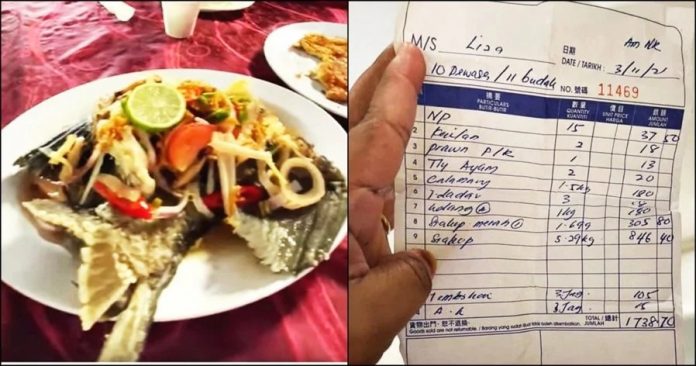 M/S Lisa 日期 Am Nk
DATE / TARIKH : 3/11/21
10 Dewasa / 11 budak No. 號碼 11469
摘要 數量 價目 銀額
PARTICULARS QUANTITY UNIT PRICE AMOUNT
BUTIR-BUTIR KUANTITI HARGA JUMLAH
NP 15 37 50
2 Kailan 2 18
3 prawn 1 13
4 Ayam 2 20
5 1.5kg 180
6 Tdadar 3
7 1kg 180
8 Siakap merah 1.69g 305 80
9 Siakap 5.29kg 846 40
3 Jag 105
A.K 3 Jag
貨物出門，恕不退換 TOTAL / 總計
Goods sold are not returnable. / Barang yang sudah dijual tidak boleh dikembalikan. JUMLAH 1738.70